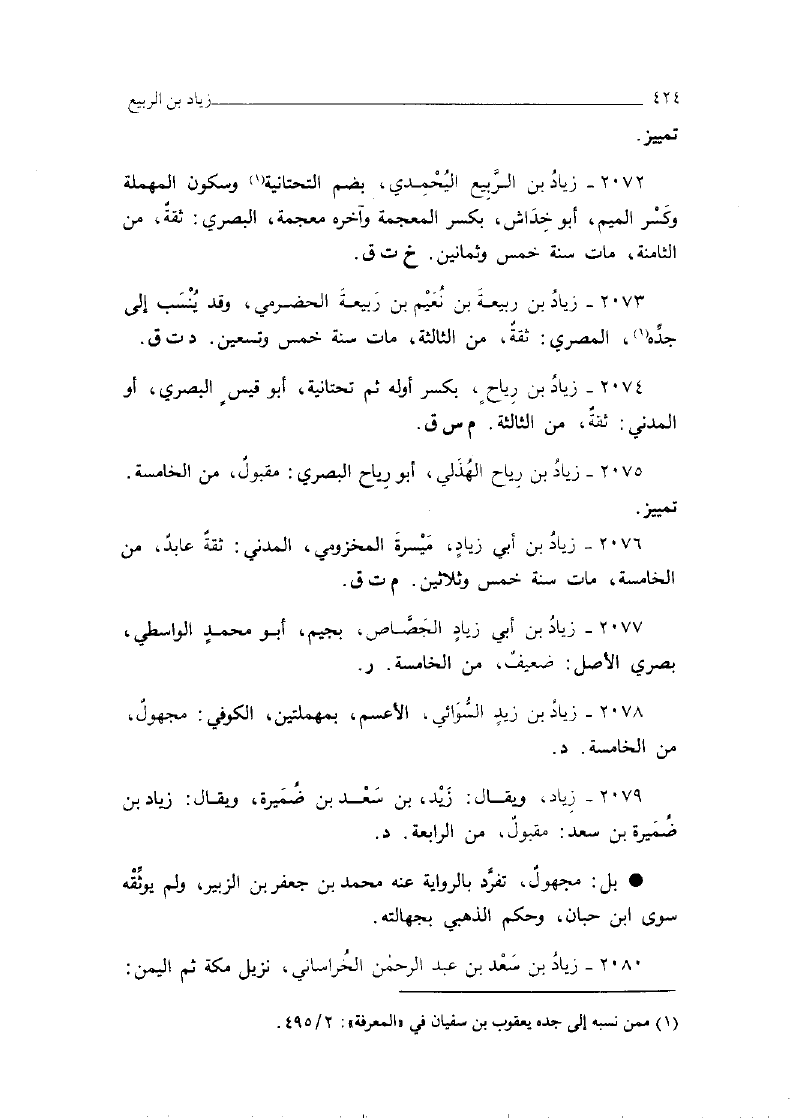 ٤٢٤ زياد بن الربيع
تمييز.
٢٠٧٢ ـ زيادُ بن الرَّبِيع اليُحْمِدي، بضم التحتانية(١) وسكون المهملة
وكَسْر الميم، أبو خِدَاش، بكسر المعجمة وآخره معجمة، البصري: ثقةٌ، من
الثامنة، مات سنة خمس وثمانين. خ ت ق.
٢٠٧٣ ـ زيادُ بن ربيعةَ بن نُعَيْم بن رَبيعةَ الحضرمي، وقد يُنْسَب إلى
جدِّه(١)، المصري: ثقةٌ، من الثالثة، مات سنة خمس وتسعين. د ت ق.
٢٠٧٤ ـ زيادُ بن رِياحٍ، بكسر أوله ثم تحتانية، أبو قيسٍ البصري، أو
المدني: ثقةٌ، من الثالثة. م س ق.
٢٠٧٥ ـ زيادُ بن رِياح الهُذَلي، أبو رِياح البصري: مقبولٌ، من الخامسة.
تمييز.
٢٠٧٦ ـ زيادُ بن أبي زيادٍ، مَيْسرةَ المخزومي، المدني: ثقةٌ عابدٌ، من
الخامسة، مات سنة خمس وثلاثين. م ت ق.
٢٠٧٧ ـ زيادُ بن أبي زيادٍ الجَصَّاص، بجيم، أبو محمدٍ الواسطي،
بصري الأصل: ضعيفٌ، من الخامسة. ر.
٢٠٧٨ ـ زيادُ بن زيدٍ السُّوَائي، الأعسم، بمهملتين، الكوفي: مجهولٌ،
من الخامسة. د.
٢٠٧٩ ـ زِياد، ويقال: زَيْد، بن سَعْد بن ضُمَيرة، ويقال: زياد بن
ضُمَيرة بن سعد: مقبولٌ، من الرابعة. د.
● بل: مجهولٌ، تفرَّد بالرواية عنه محمد بن جعفر بن الزبير، ولم يوثِّقْه
سوى ابن حبان، وحكم الذهبي بجهالته.
٢٠٨٠ ـ زيادُ بن سَعْد بن عبد الرحمٰن الخُراساني، نزيل مكة ثم اليمن:
(١) ممن نسبه إلى جده يعقوب بن سفيان في «المعرفة»: ٢/ ٤٩٥.